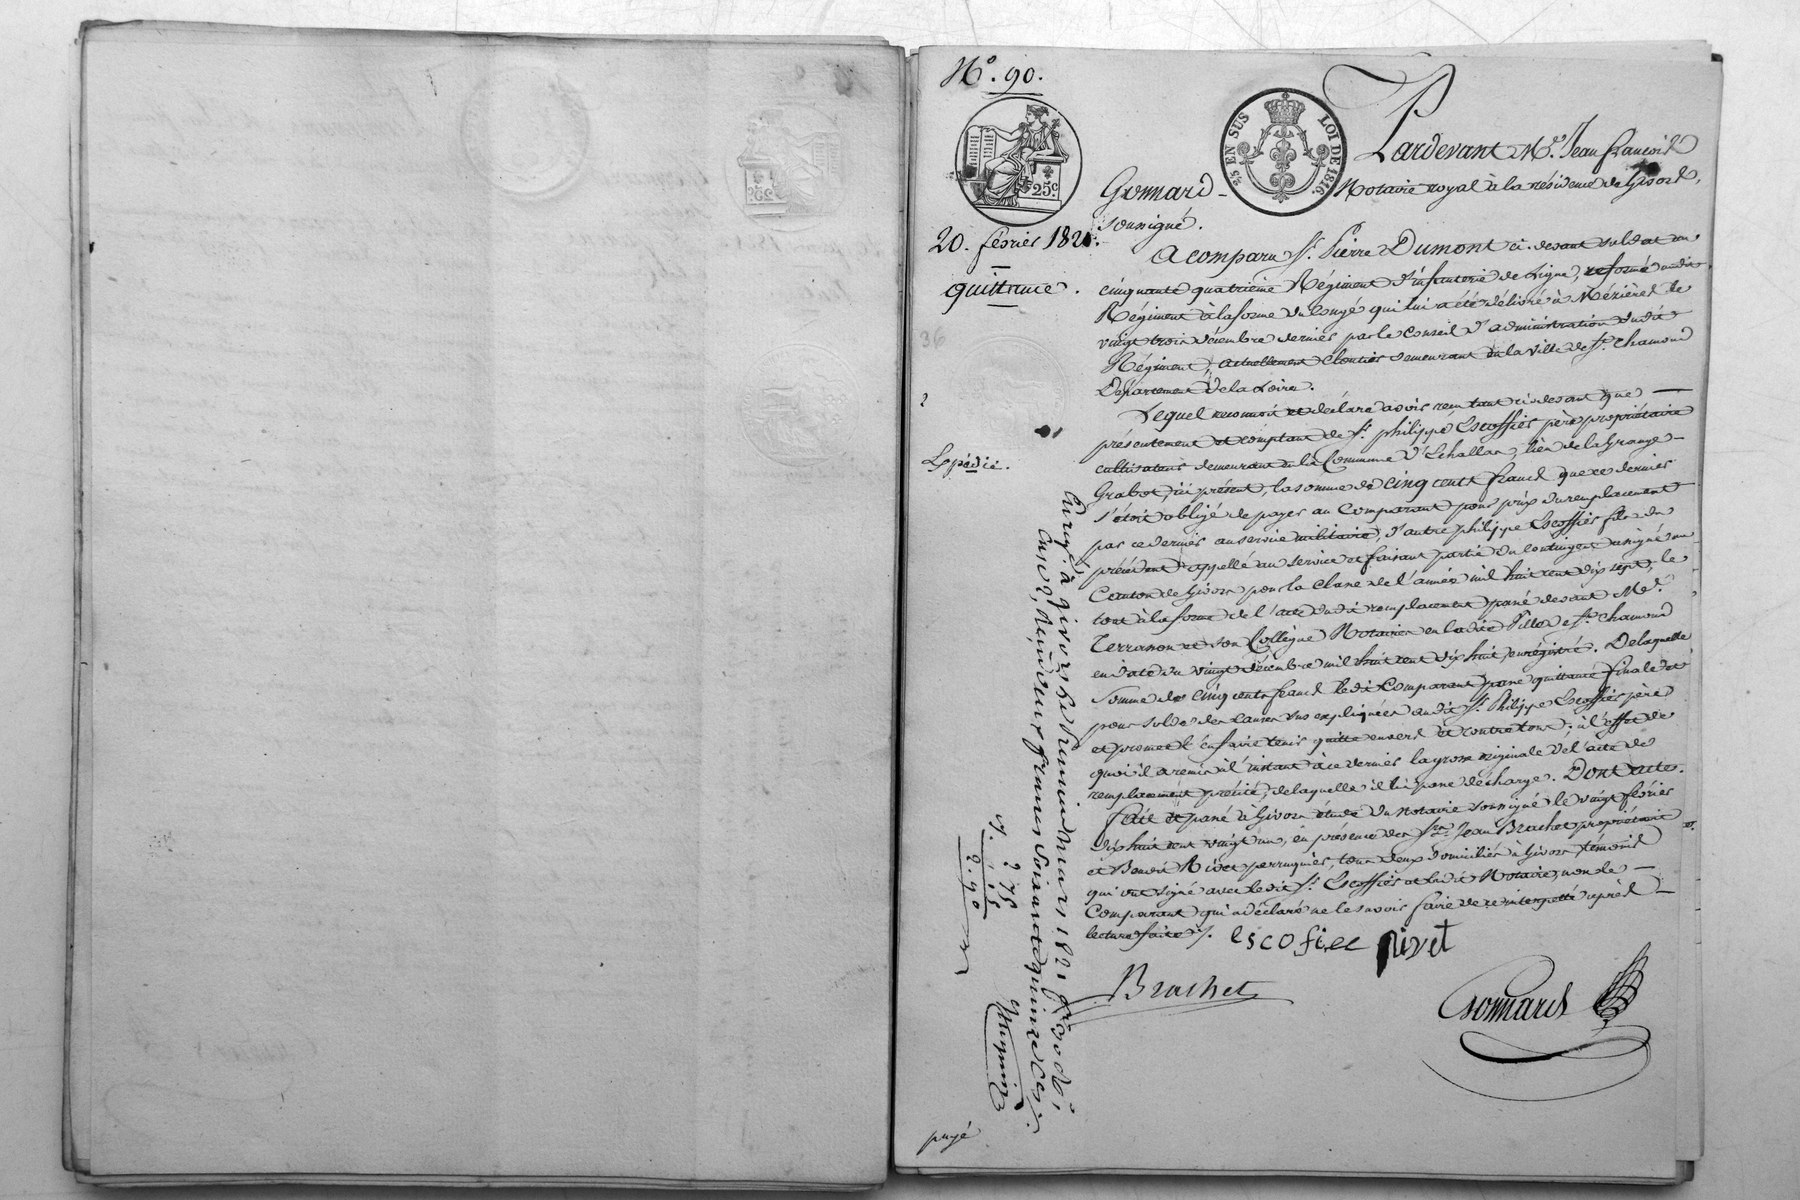 N.º 90.
25 EN SUS LOI DE 1816.
25.c
20. février 1821.
quittance.
36
Expédié.
Pardevant M.e Jean François
Gonnard - Notaire royal à la résidence de Givors,
soussigné.
A comparu S.r Pierre Dumont ci-devant soldat au
cinquante quatrieme Régiment d'infanterie de Ligne, reformé dudit
Régiment à la forme du congé qui lui a été délivré à Mézières le
vingt trois décembre dernier par le Conseil d'administration dudit
Régiment, actuellement cloutier demeurant en la ville de S.t Chamond
Département de la Loire.
Lequel reconnoit et déclare avoir reçu tant ci-devant que
présentement et comptant de S.r philippe Escoffier père propriétaire
cultivateur demeurant en la Commune d'Echallas, lieu de la Grange-
Grabot, ici présent, la somme de cinq cents francs que ce dernier
s'étoit obligé de payer au Comparant pour prix du remplacement
par ce dernier au service militaire, d'autre philippe Escoffier fils du
précédent appellé au service et faisant partie du contingent assigné au
Canton de Givors pour la Classe de l'année mil huit cent dix sept, le
tout à la forme de l'acte dudit remplacement passé devant M.e
Terrasson et son Collègue Notaires en ladite Ville de S.t Chamond
en date du vingt décembre mil huit cent dix huit, enregistré. De laquelle
Somme de cinq cents francs ledit Comparant passe quittance finale et
pour solde des causes sus expliquées audit S.r Philippe Escoffier père
et promet l'en faire tenir quitte envers et contre tous; à l'effet de
quoi il a remis à l'instant à ce dernier la grosse originale de l'acte de
remplacement précité, de laquelle il lui passe décharge. Dont acte.
Fait et passé à Givors étude du Notaire soussigné le vingt février
dix huit cent vingt un, en présence des S.rs Jean Brachet propriétaire
et Benoit Rivet perruquier, tous deux domiciliés à Givors, témoins
qui ont signé avec ledit S.r Escoffier et ledit Notaire, non le -
Comparant qui a déclaré ne le savoir faire de ce interpellé après -
lecture faite ./.
escofier rivet
Brachet
Gonnard
Enregé à Givors le mars 1821
Reçu deux francs soixante quinze ces.
2 75
2.90
payé